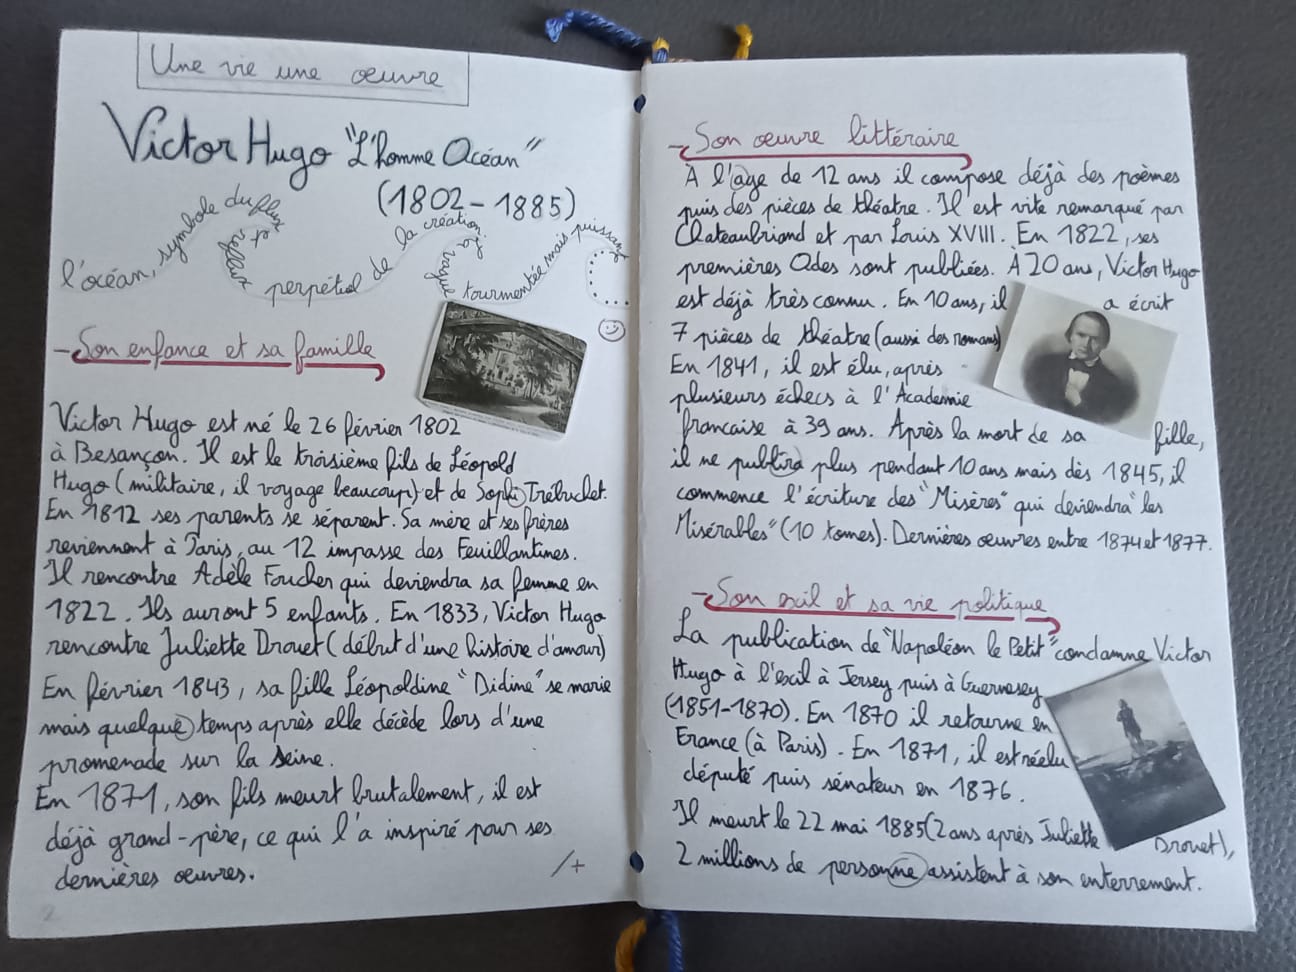 Une vie une œuvre
Victor Hugo "L'homme Océan"
(1802 - 1885)
l'océan, symbole du flux et reflux perpétuel de la création; vague tourmentée mais puissante
- Son enfance et sa famille
Victor Hugo est né le 26 février 1802
à Besançon. Il est le troisième fils de Léopold
Hugo (militaire, il voyage beaucoup) et de Sophi Trébuchet.
En 1812 ses parents se séparent. Sa mère et ses frères
reviennent à Paris, au 12 impasse des Feuillantines.
Il rencontre Adèle Foucher qui deviendra sa femme en
1822. Ils auront 5 enfants. En 1833, Victor Hugo
rencontre Juliette Drouet (début d'une histoire d'amour)
En février 1843, sa fille Léopoldine "Didine" se marie
mais quelque temps après elle décède lors d'une
promenade sur la seine.
En 1871, son fils meurt brutalement, il est
déjà grand-père, ce qui l'a inspiré pour ses
dernières œuvres.
/+
2
- Son œuvre littéraire
À l'age de 12 ans il compose déjà des poèmes
puis des pièces de théatre. Il est vite remarqué par
Chateaubriand et par Louis XVIII. En 1822, ses
premières Odes sont publiées. À 20 ans, Victor Hugo
est déjà très connu. En 10 ans, il a écrit
7 pièces de théatre (aussi des romans)
En 1841, il est élu, après
plusieurs échecs à l'Academie
francaise à 39 ans. Après la mort de sa fille,
il ne publira plus pendant 10 ans mais dès 1845, il
commence l'écriture des "Misères" qui deviendra "les
Misérables" (10 tomes). Dernières œuvres entre 1874 et 1877.
- Son exil et sa vie politique
La publication de "Napoléon le Petit" condamne Victor
Hugo à l'exil à Jersey puis à Guernesey
(1851-1870). En 1870 il retourne en
France (à Paris). En 1871, il est réélu
député puis sénateur en 1876.
Il meurt le 22 mai 1885 (2 ans après Juliette Drouet),
2 millions de personne assistent à son enterrement.